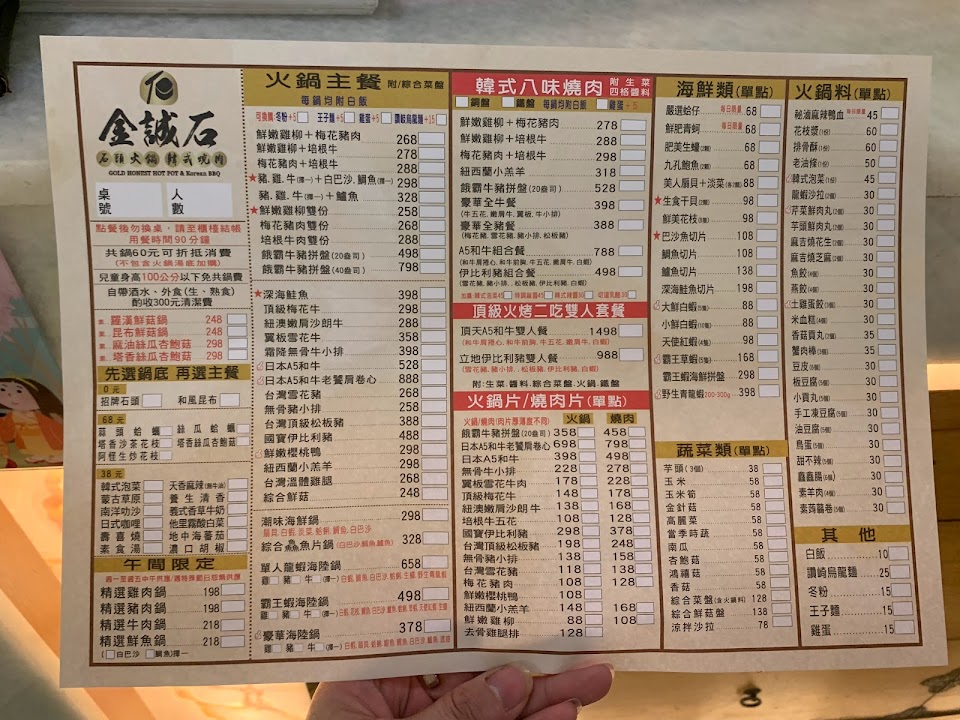 金誠石
石頭火鍋 韓式燒肉
GOLD HONEST HOT POT & Korean BBQ
桌號
人數
點餐後勿換桌，請至櫃檯結帳
用餐時間90分鐘
共鍋60元可折抵消費
(不包含火鍋湯底加購)
兒童身高100公分以下免共鍋費
自帶酒水、外食(生、熟食)
酌收300元清潔費
素 羅漢鮮菇鍋 248
素 昆布鮮菇鍋 248
素 麻油絲瓜杏鮑菇 298
素 塔香絲瓜杏鮑菇 298
先選鍋底 再選主餐
0 元
招牌石頭 和風昆布
68 元
蒜頭蛤蠣 絲瓜蛤蠣
塔香沙茶花枝 塔香絲瓜杏鮑菇
阿嬤生炒花枝
38 元
韓式泡菜 天香麻辣(鍋牛油)
蒙古草原 養生清香
南洋叻沙 義式香草牛奶
日式咖哩 他里霧酸白菜
壽喜燒 地中海蕃茄
素食湯 濃口胡椒
午間限定
週一至週五中午供應/適特殊節日恕無供應
精選雞肉鍋 198
精選豬肉鍋 198
精選牛肉鍋 218
精選鮮魚鍋 218
(白巴沙 鯛魚)擇一
火鍋主餐 附/綜合菜盤
每鍋均附白飯
可換購:冬粉+5 王子麵+5 雞蛋+5 讚岐烏龍麵+15
鮮嫩雞柳＋梅花豬肉 268
鮮嫩雞柳＋培根牛 278
梅花豬肉＋培根牛 288
★豬.雞.牛(擇一)＋白巴沙.鯛魚(擇一) 298
豬.雞.牛(擇一)＋鱸魚 328
★鮮嫩雞柳雙份 258
梅花豬肉雙份 288
培根牛肉雙份 288
餓霸牛豬拼盤(20盎司) 498
餓霸牛豬拼盤(40盎司) 798
★深海鮭魚 398
頂級梅花牛 298
紐澳嫩肩沙朗牛 288
翼板雪花牛 358
霜降無骨牛小排 398
日本A5和牛 528
日本A5和牛老饕肩卷心 888
台灣雪花豬 268
無骨豬小排 258
台灣頂級松板豬 388
國寶伊比利豬 488
鮮嫩櫻桃鴨 298
紐西蘭小羔羊 298
台灣溫體雞腿 268
綜合鮮菇 248
潮味海鮮鍋 298
綜合鱻魚片鍋 (白巴沙.鯛魚.鱸魚) 328
單人龍蝦海陸鍋 658
霸王蝦海陸鍋 498
豪華海陸鍋 378
韓式八味燒肉 附生菜 四格醬料
銅盤 鐵盤 每鍋均附白飯 雞蛋+5
鮮嫩雞柳＋梅花豬肉 278
鮮嫩雞柳＋培根牛 288
梅花豬肉＋培根牛 298
紐西蘭小羔羊 318
餓霸牛豬拼盤(20盎司) 528
豪華全牛餐 398
(牛五花、嫩肩牛、翼板、牛小排)
豪華全豬餐 388
(梅花豬、雪花豬、豬小排、松板豬)
A5和牛組合餐 788
(和牛肩捲心、和牛前胸、牛五花、嫩肩牛、白蝦)
伊比利豬組合餐 498
(雪花豬、豬小排、松板豬、伊比利豬、白蝦)
頂級火烤二吃雙人套餐
頂天A5和牛雙人餐 1498
(和牛肩捲心、和牛前胸、牛五花、嫩肩牛、翼板、白蝦)
立地伊比利豬雙人餐 988
(雪花豬、豬小排、松板豬、伊比利豬、白蝦)
附:生菜.醬料.綜合菜盤.火鍋.鐵盤
火鍋片/燒肉片(單點)
火鍋/燒肉(肉片厚薄度不同) 火鍋 燒肉
餓霸牛豬拼盤(20盎司) 358 458
日本A5和牛老饕肩卷心 698 798
日本A5和牛 398 498
無骨牛小排 228 278
翼板雪花牛肉 178 228
頂級梅花牛 148 178
紐澳嫩肩沙朗牛 138 168
培根牛五花 108 128
國寶伊比利豬 298 378
台灣頂級松板豬 198 248
無骨豬小排 138 158
台灣雪花豬 118 138
梅花豬肉 108 128
鮮嫩櫻桃鴨 108
紐西蘭小羔羊 148 168
鮮嫩雞柳 88 108
去骨雞腿排 128
海鮮類(單點)
嚴選蛤仔 每日限量 68
鮮肥青蚵 每日限量 68
肥美生蠔(2顆) 68
九孔鮑魚(2顆) 68
美人扇貝＋淡菜(各2顆) 88
★生食干貝(2顆) 98
鮮美花枝 98
★巴沙魚切片 108
鯛魚切片 108
鱸魚切片 138
深海鮭魚切片 198
大鮮白蝦 88
小鮮白蝦 88
天使紅蝦 98
霸王草蝦 168
霸王蝦海鮮拼盤 298
野生青龍蝦200-300g 398
蔬菜類(單點)
芋頭(3個) 38
玉米 58
玉米筍 58
金針菇 58
高麗菜 58
當季時蔬 58
南瓜 58
杏鮑菇 58
鴻禧菇 58
香菇 58
綜合菜盤(含火鍋料) 128
綜合鮮菇盤 138
涼拌沙拉 78
火鍋料(單點)
秘滷麻辣鴨血 每日限量 45
花枝漿(1份) 60
排骨酥(1份) 60
老油條(1份) 50
韓式泡菜(1份) 45
龍蝦沙拉 30
芹菜鮮肉丸 30
芋頭鮮肉丸 30
麻吉燒花生 30
麻吉燒芝麻 30
魚餃 30
燕餃 30
土雞蛋餃 30
米血糕 30
香菇貢丸 35
蟹肉棒 30
豆皮 30
板豆腐 30
小貢丸 30
手工凍豆腐 30
油豆腐 30
鳥蛋 30
甜不辣 30
鑫鑫腸 30
素羊肉 30
素蒟蒻卷 30
其他
白飯 10
讚崎烏龍麵 25
冬粉 15
王子麵 15
雞蛋 15